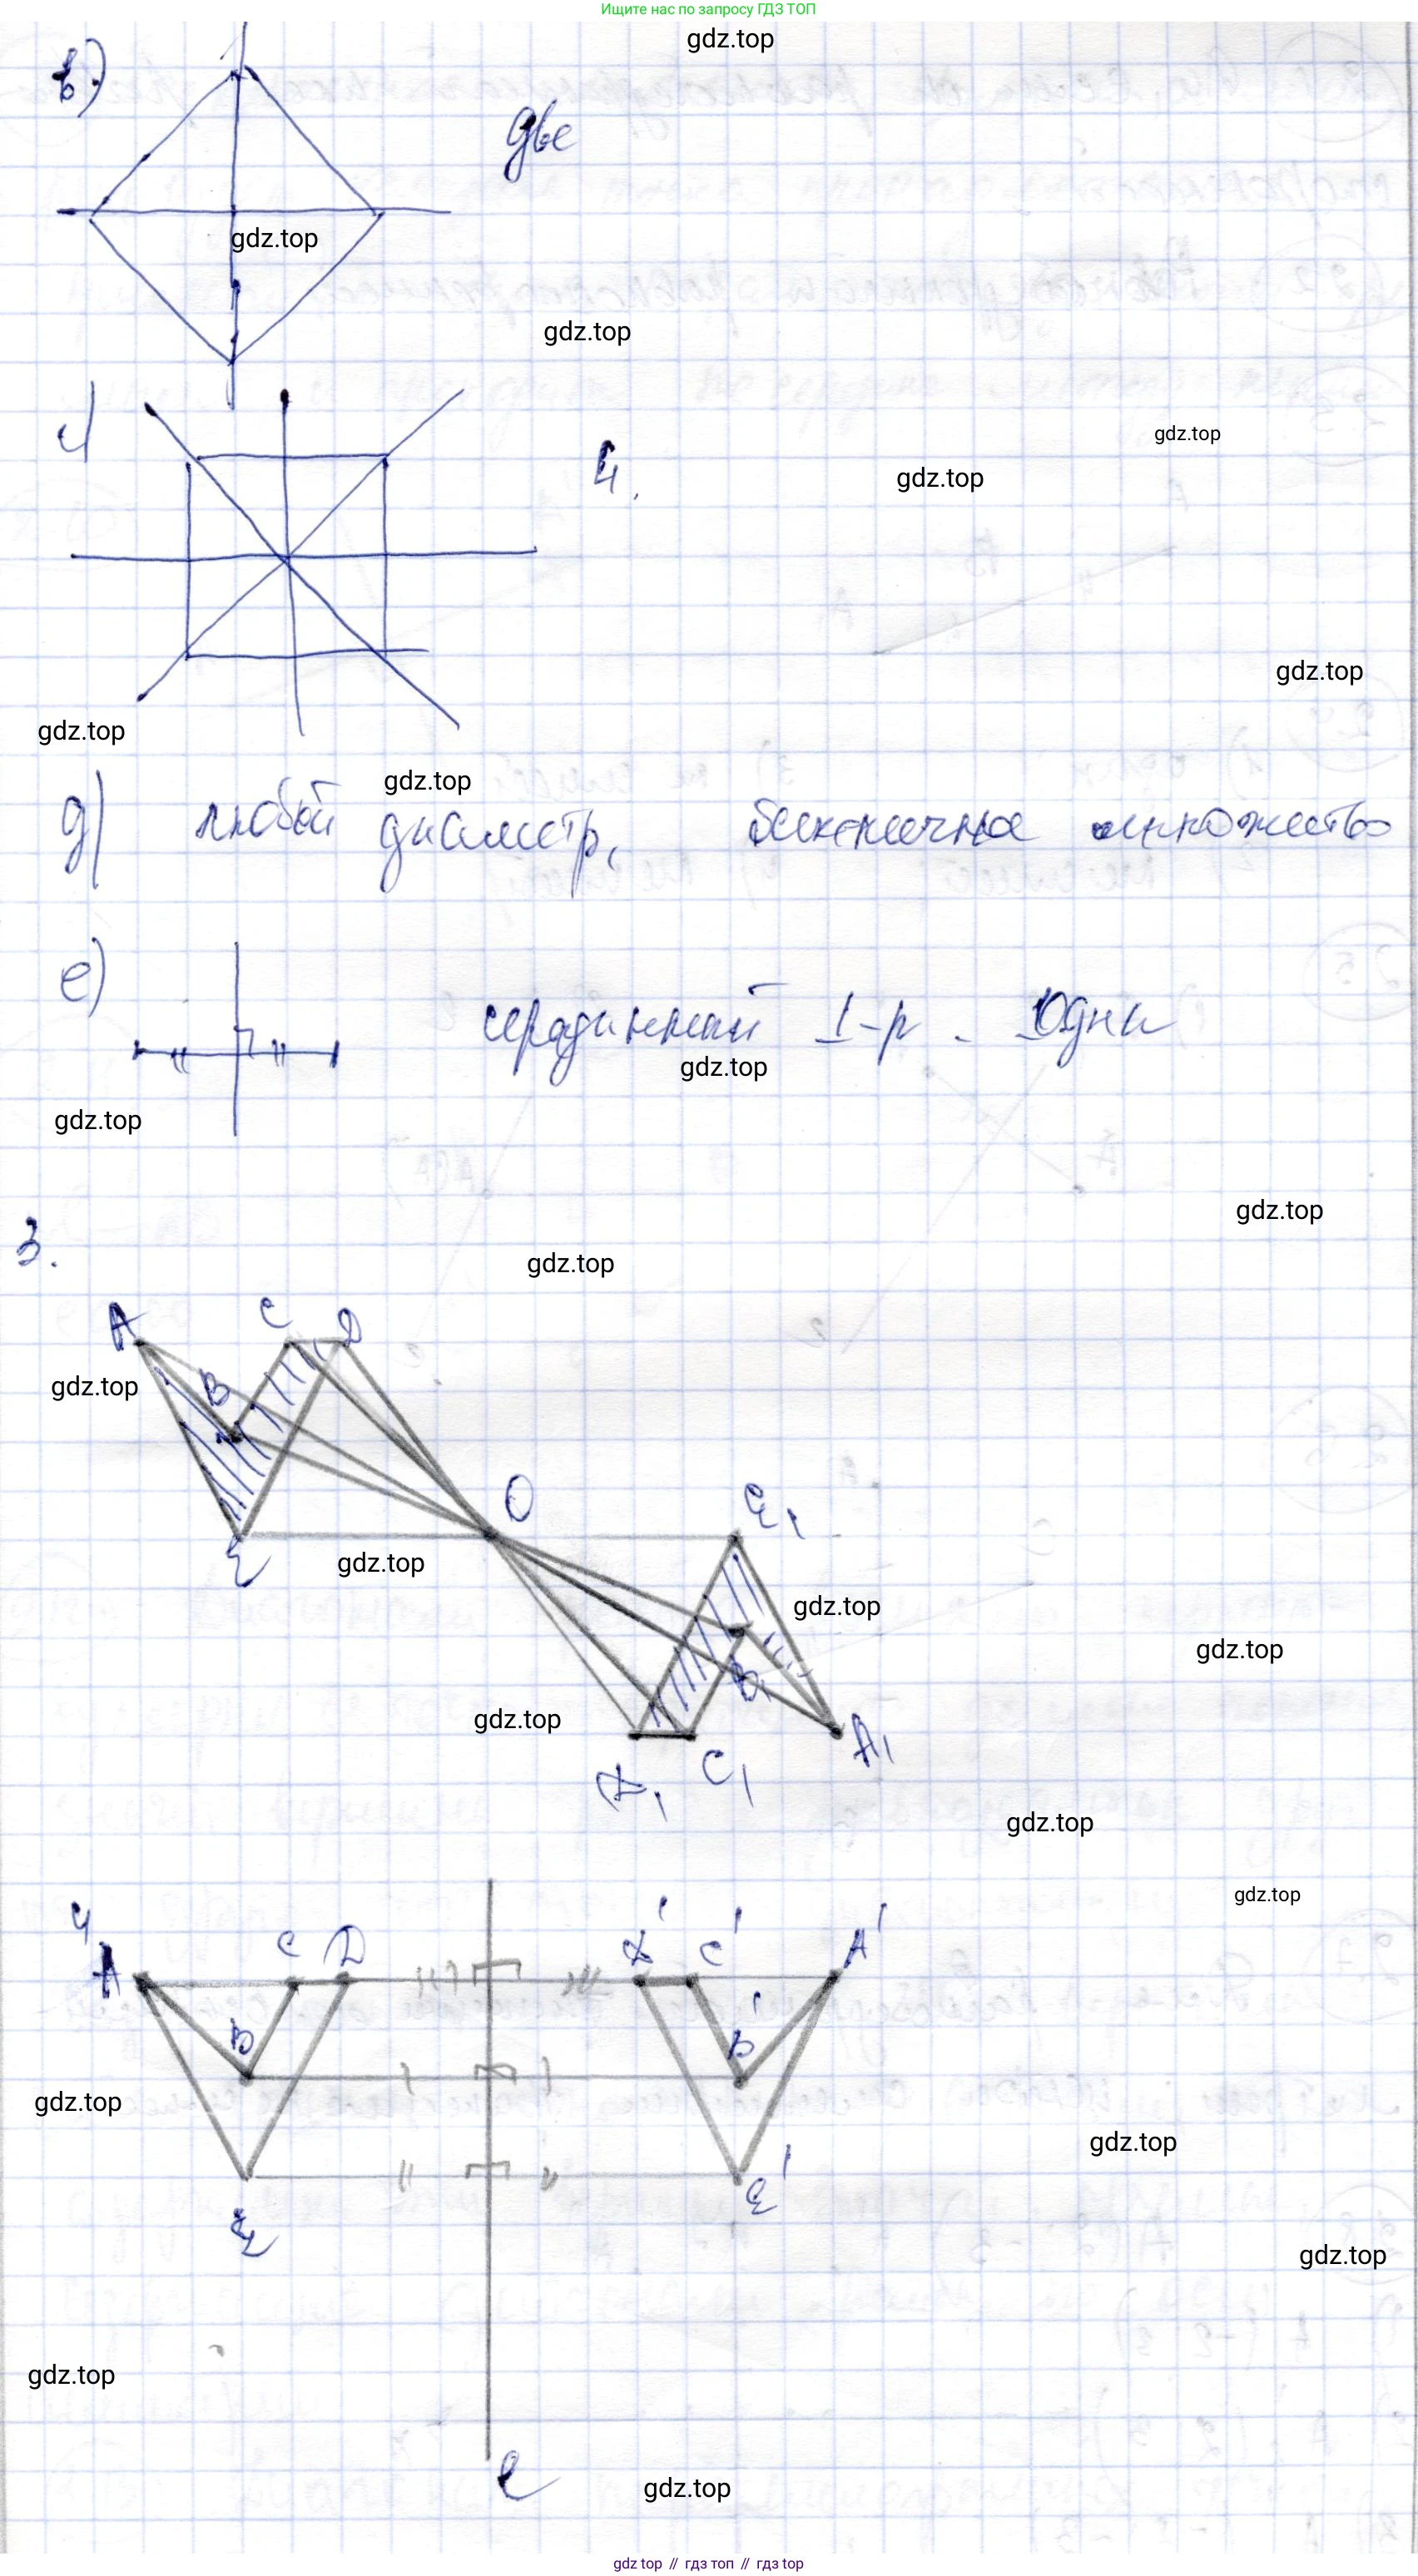 Ищите нас по запросу ГДЗ ТОП
gdz.top
в)
две
gdz.top
gdz.top
г)
4.
gdz.top
gdz.top
gdz.top
gdz.top
gdz.top
д) любой диаметр, бесконечное множество
е)
серединный ⊥-р. Одна
gdz.top
gdz.top
gdz.top
3.
gdz.top
A C D
gdz.top
B
O
E₁
E
gdz.top
gdz.top
gdz.top
B₁
gdz.top
A₁
D₁ C₁
gdz.top
gdz.top
4
A C D D' C' A'
B B'
gdz.top
gdz.top
E E'
gdz.top
gdz.top
l
gdz.top
gdz top // гдз топ // гдз top